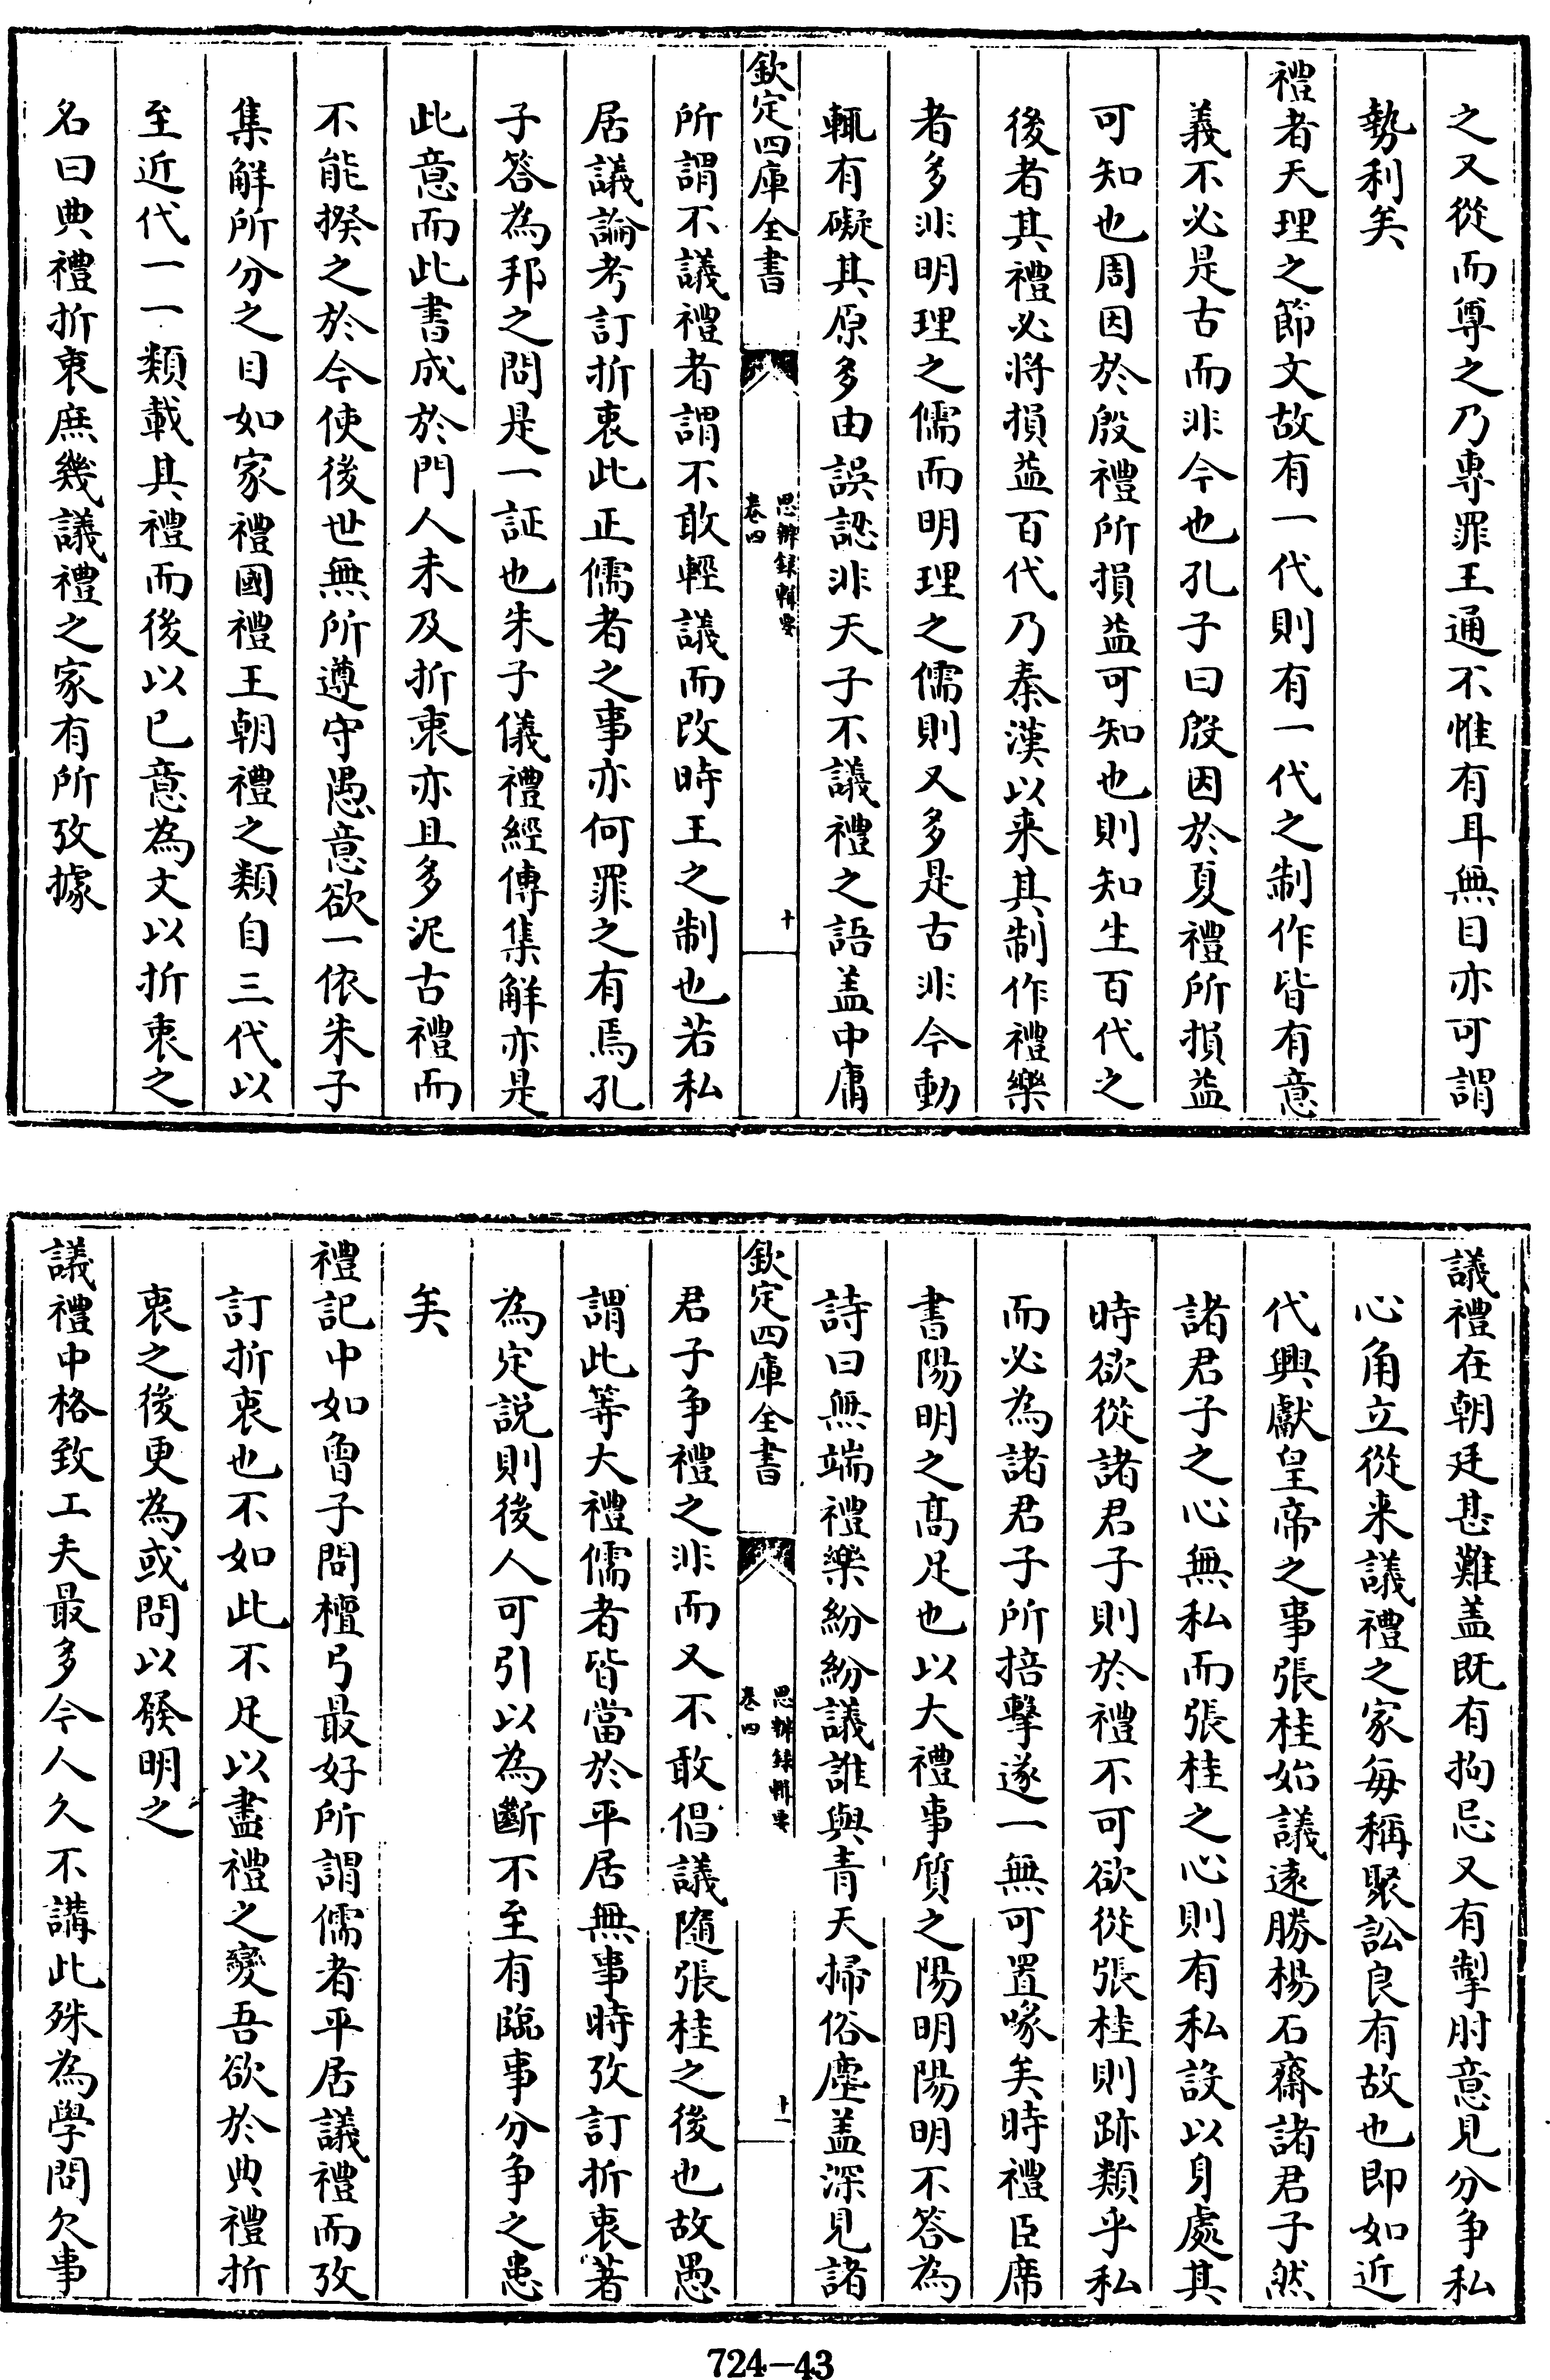 之又從而尊之乃專罪王通不惟有耳無目亦可謂
勢利矣
禮者天理之節文故有一代則有一代之制作皆有意
義不必是古而非今也孔子曰殷因於夏禮所損益
可知也周因於殷禮所損益可知也則知生百代之
後者其禮必將損益百代乃秦漢以来其制作禮樂
者多非明理之儒而明理之儒則又多是古非今動
輒有礙其原多由誤認非天子不議禮之語盖中庸
欽定四庫全書
思辨録輯要
卷四
十
所謂不議禮者謂不敢輕議而改時王之制也若私
居議論考訂折衷此正儒者之事亦何罪之有焉孔
子答為邦之問是一証也朱子儀禮經傳集解亦是
此意而此書成於門人未及折衷亦且多泥古禮而
不能揆之於今使後世無所遵守愚意欲一依朱子
集解所分之目如家禮國禮王朝禮之類自三代以
至近代一一類載其禮而後以已意為文以折衷之
名曰典禮折衷庶幾議禮之家有所攷據
議禮在朝廷甚難盖既有拘忌又有掣肘意見分争私
心角立從来議禮之家每稱聚訟良有故也即如近
代興獻皇帝之事張桂始議遠勝楊石齋諸君子然
諸君子之心無私而張桂之心則有私設以身處其
時欲從諸君子則於禮不可欲從張桂則跡類乎私
而必為諸君子所掊擊遂一無可置喙矣時禮臣席
書陽明之高足也以大禮事質之陽明陽明不答為
詩曰無端禮樂紛紛議誰與青天掃俗塵盖深見諸
欽定四庫全書
思辨録輯要
卷四
十一
君子争禮之非而又不敢倡議隨張桂之後也故愚
謂此等大禮儒者皆當於平居無事時攷訂折衷著
為定說則後人可引以為斷不至有臨事分争之患
矣
禮記中如曾子問檀弓最好所謂儒者平居議禮而攷
訂折衷也不如此不足以盡禮之變吾欲於典禮折
衷之後更為或問以發明之
議禮中格致工夫最多今人久不講此殊為學問欠事
724-43